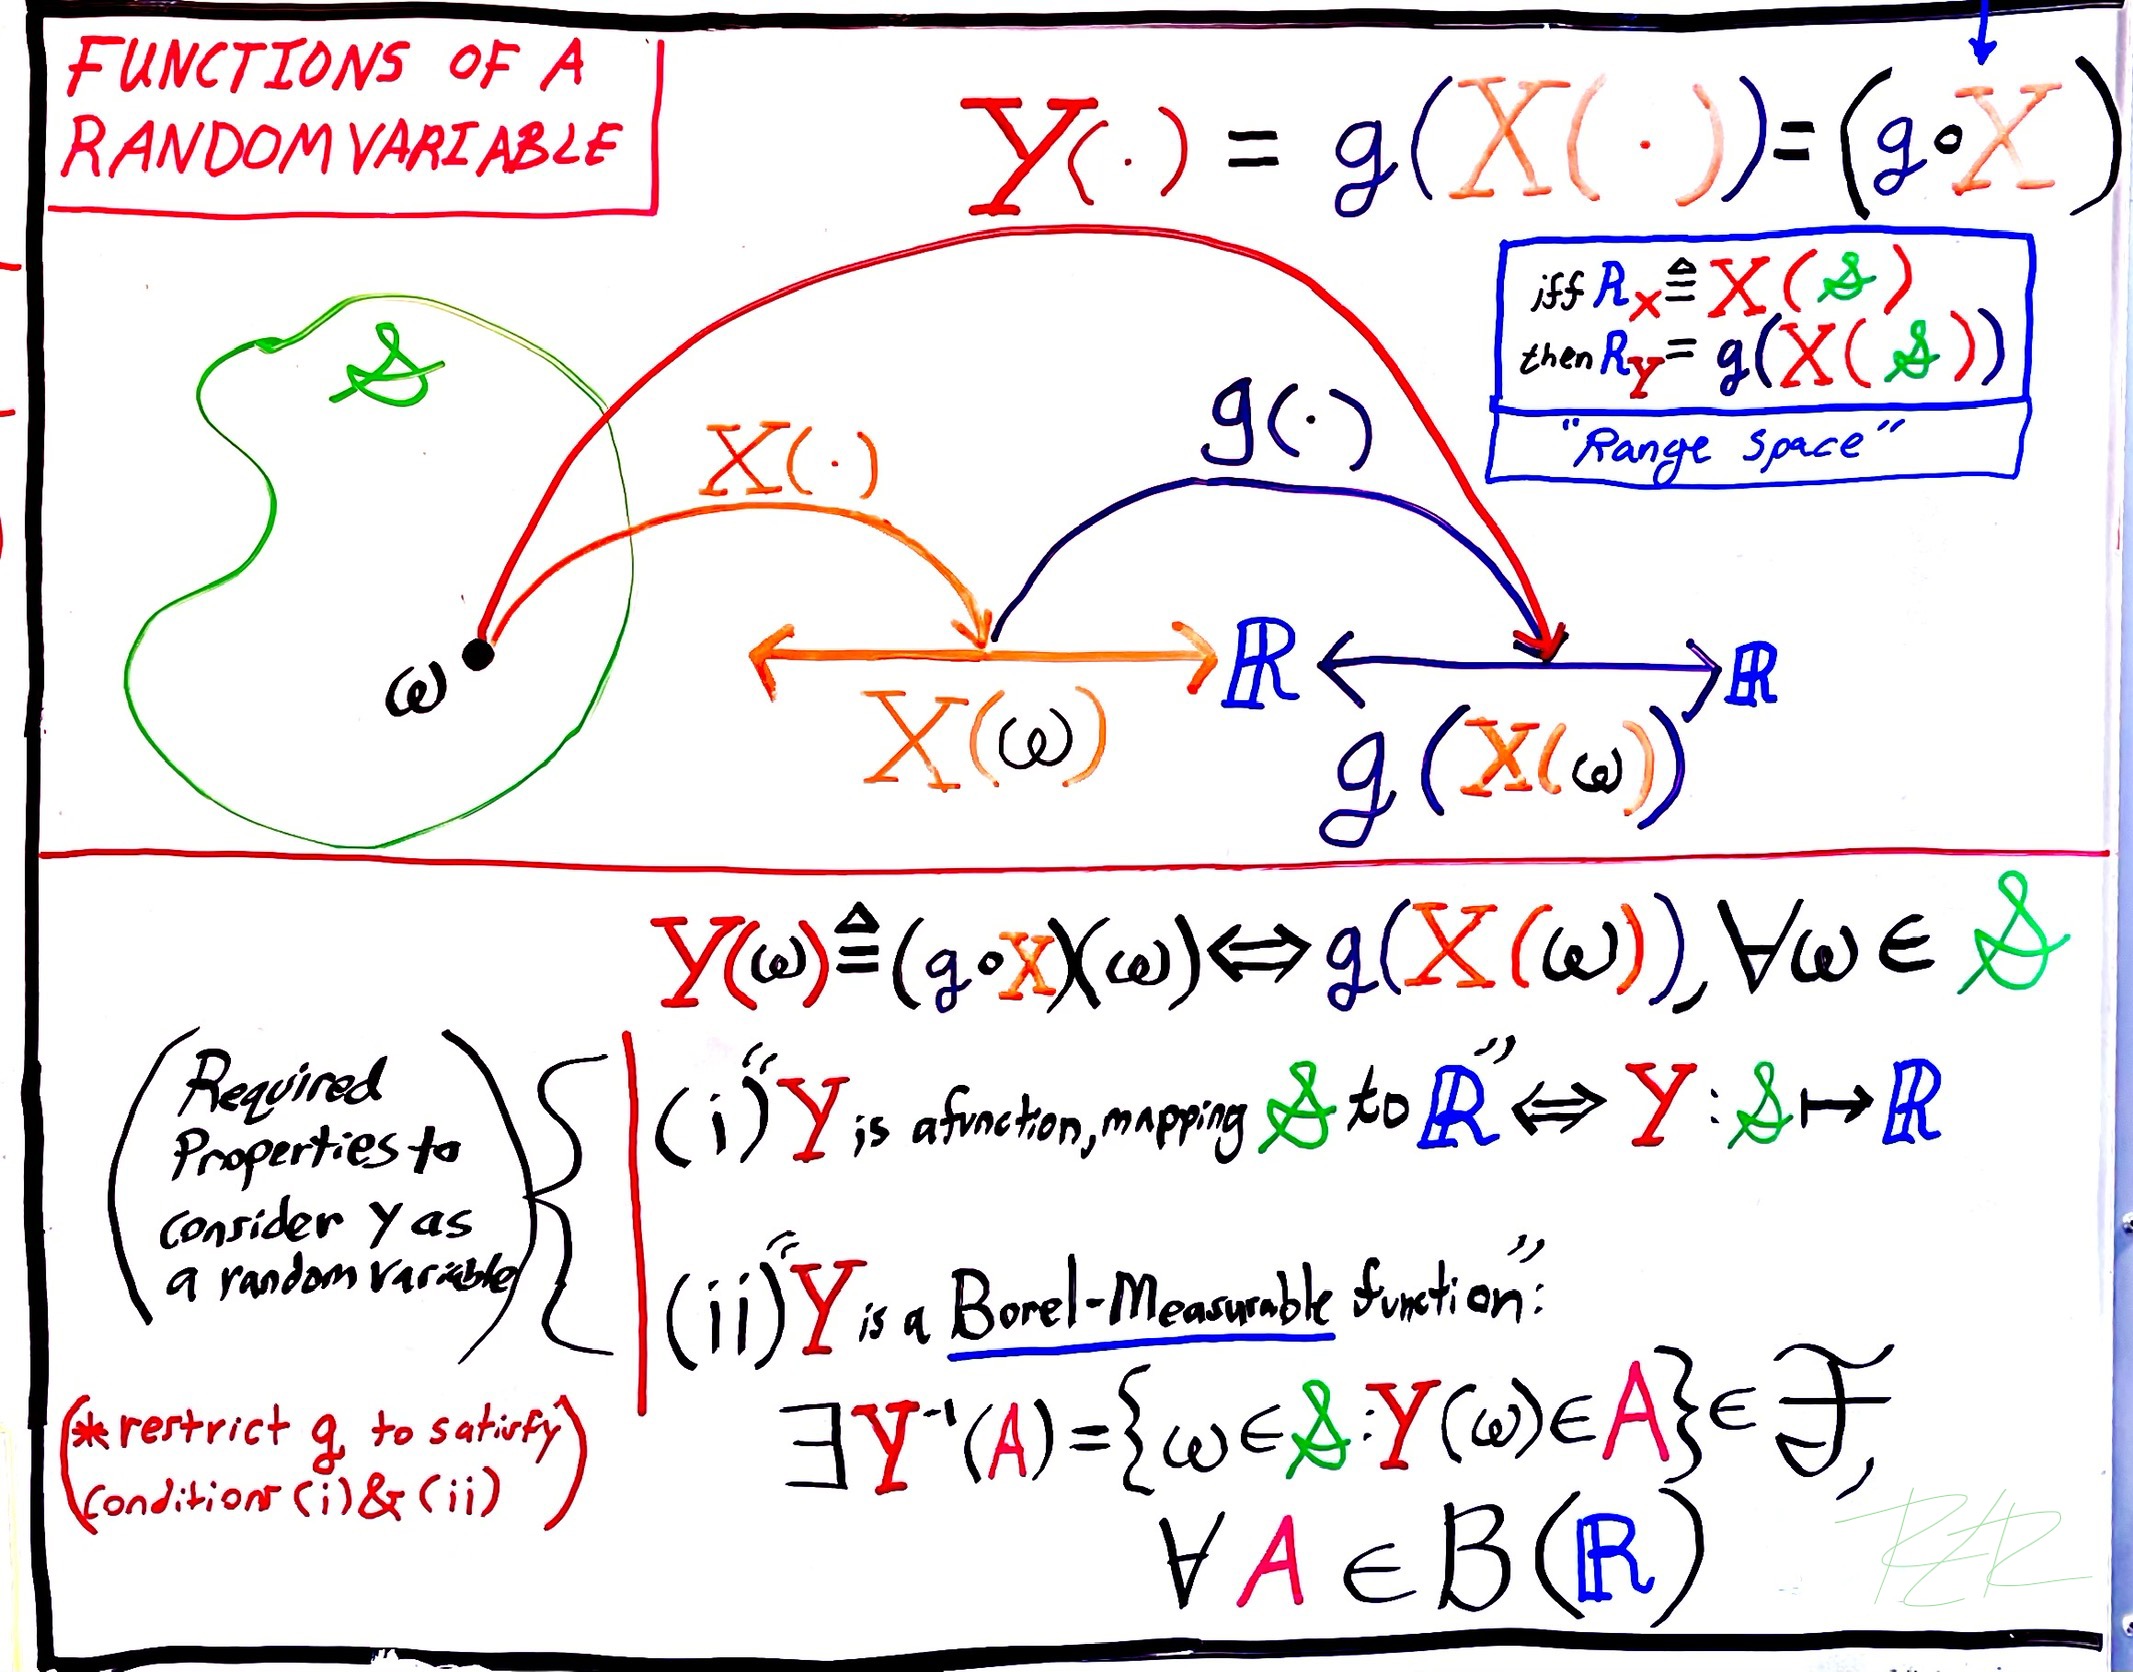 FUNCTIONS OF A
RANDOM VARIABLE
Y(·) = g(X(·)) = (g∘X)
iff R_X ≜ X(S)
then R_Y = g(X(S))
"Range Space"
S
X(·)
g(·)
ω
ℝ
ℝ
X(ω)
g(X(ω))
Y(ω) ≜ (g∘X)(ω) ⟺ g(X(ω)), ∀ω ∈ S
(Required
Properties to
consider Y as
a random variable)
(i) "Y is a function, mapping S to ℝ" ⟺ Y : S ↦ ℝ
(ii) "Y is a Borel-Measurable function":
∃ Y⁻¹(A) = {ω ∈ S : Y(ω) ∈ A} ∈ ℱ,
∀ A ∈ B(ℝ)
(* restrict g to satisfy
conditions (i) & (ii))